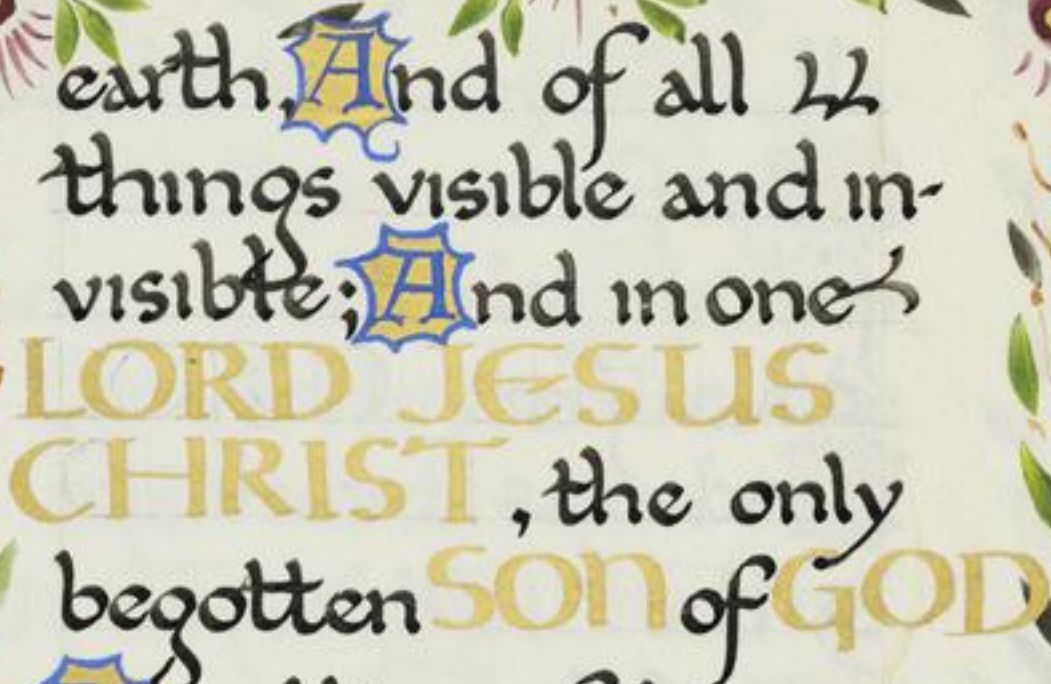 earth, And of all
things visible and in-
visible; And in one
LORD JESUS
CHRIST, the only
begotten SON of GOD